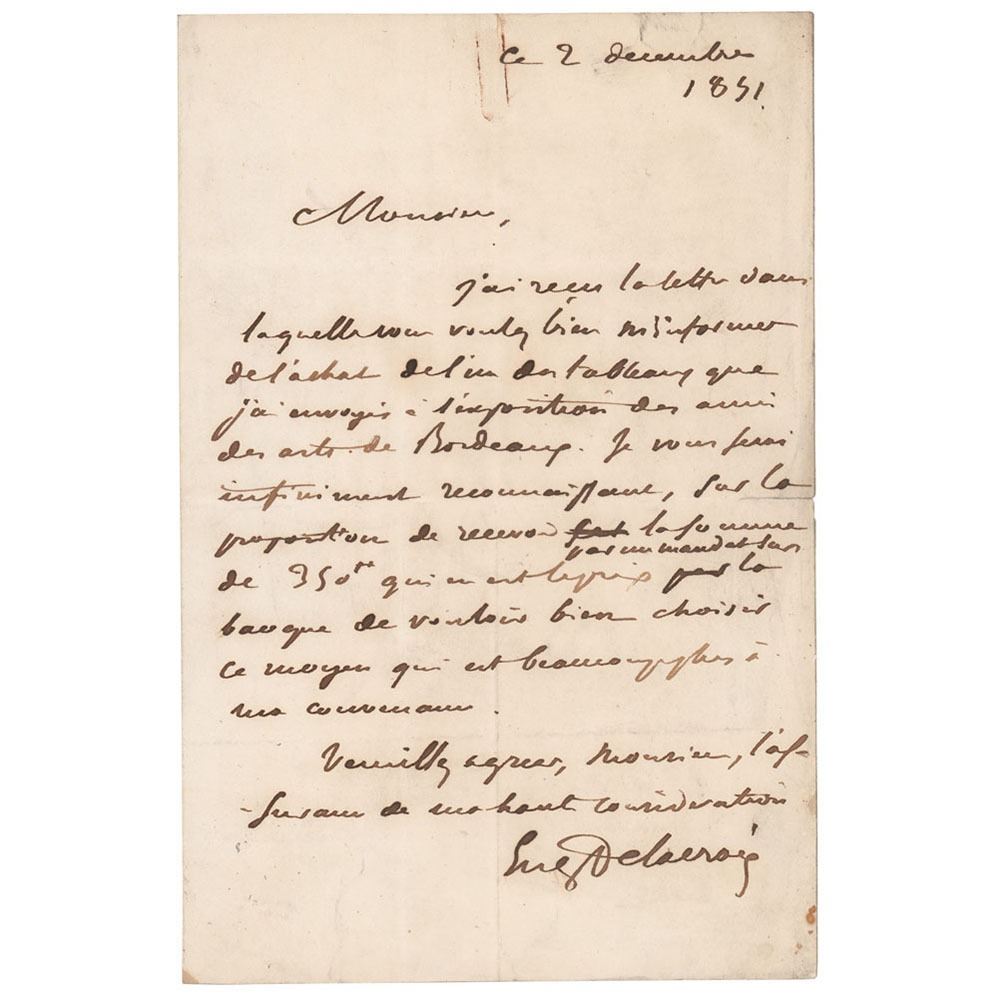 ce 2 decembre
1851.
Monsieur,
j'ai reçu la lettre dans
laquelle vous voulez bien m'informer
de l'achat de l'un des tableaux que
j'ai envoyés à l'exposition des amis
des arts de Bordeaux. Je vous serai
infiniment reconnaissant, sur la
proposition de recevoir la somme
par un mandat sur
de 350 frs qui en est le prix par la
banque de vouloir bien choisir
ce moyen qui est beaucoup plus à
ma convenance.
Veuillez agréer, Monsieur, l'as-
-surance de ma haute considération
Eug Delacroix